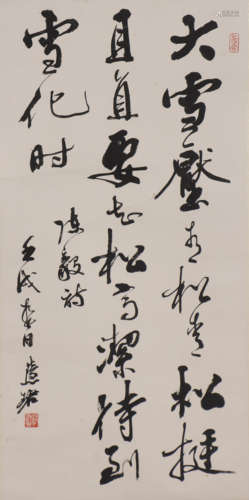 大雪壓青松青松挺
且直要知松高潔待到
雪化时
陈毅诗
壬戌春日